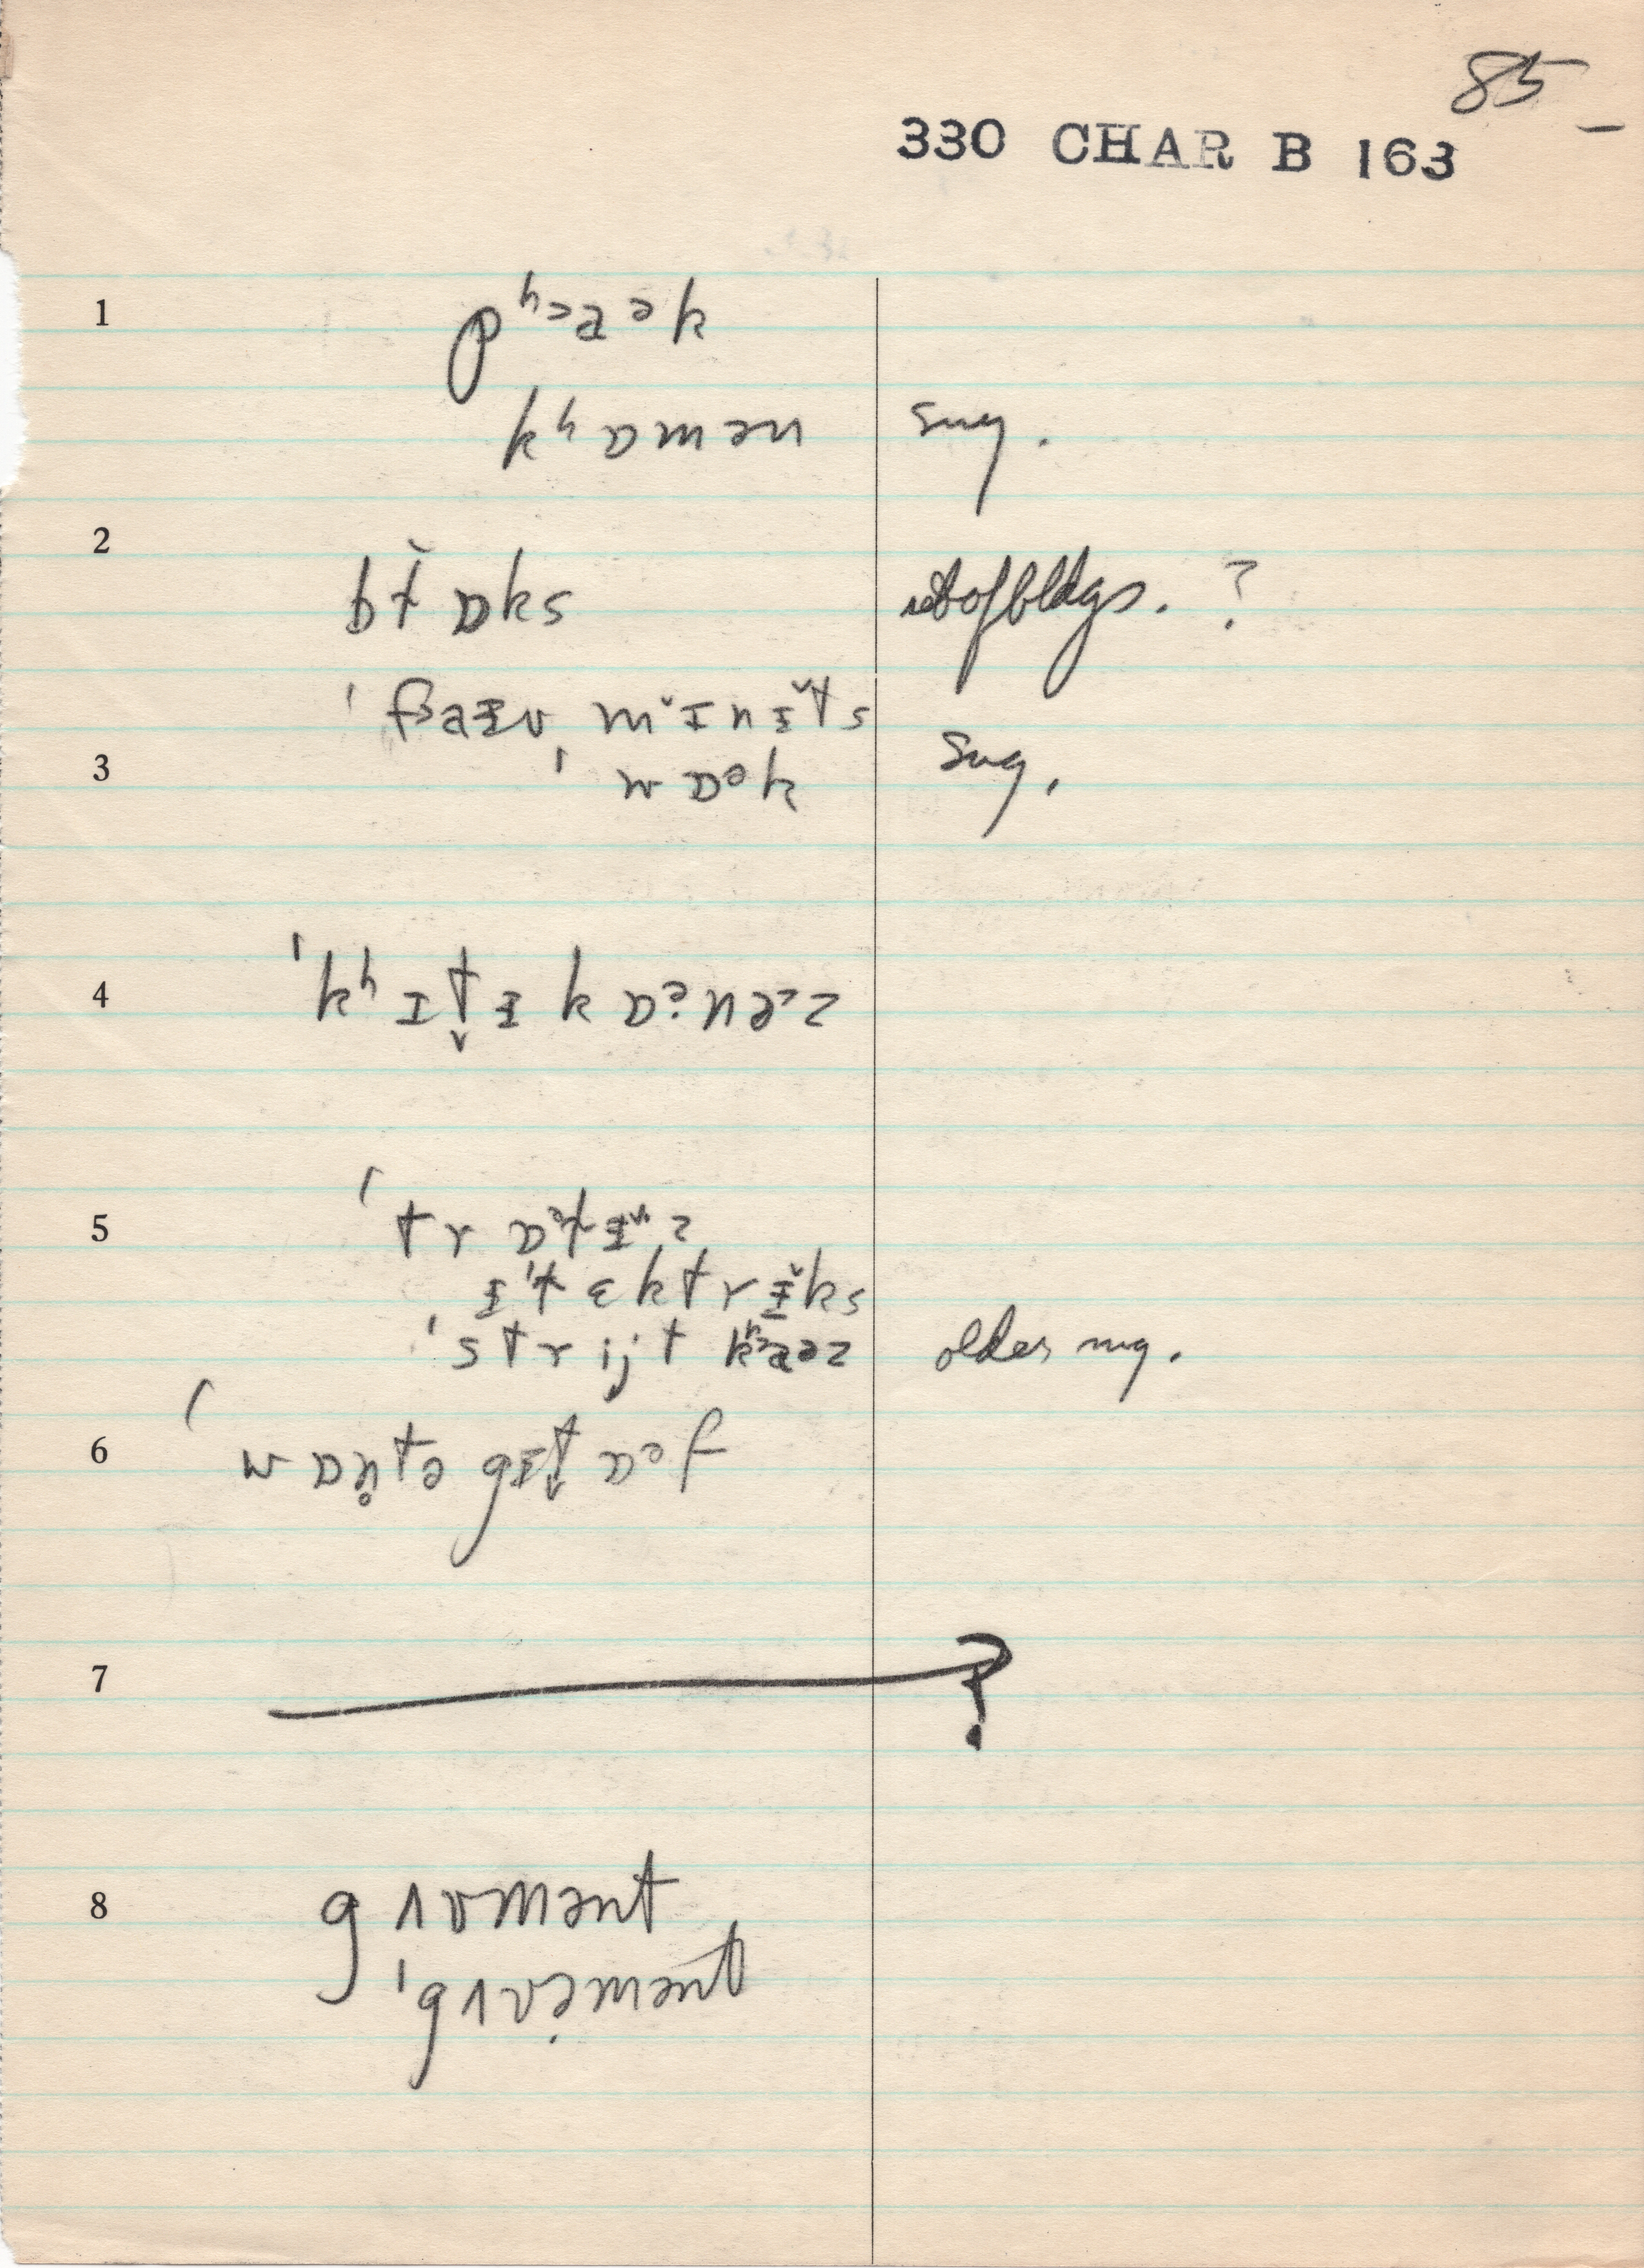 85
330 CHAR B 163
1 pʰᵊaək
kʰɒmən sug.
2 bɫɒks set of bldgs. ?
ˈfᵊaɪv ˌmɪnɪt̬s
3 ˈwɒᵊk sug.
4 ˈkʰɪt̬ɪkɒᵊnəᵊz
5 ˈtrɒᵊɫɪz
ɪˈɫɛktrɪks
ˈstrijt kʰᵊaəz older sug.
6 ˈwɒn̥tə gɪt̬ ɒᵊf
7 ?
8 gʌvmənt
ˈgʌvəmənt